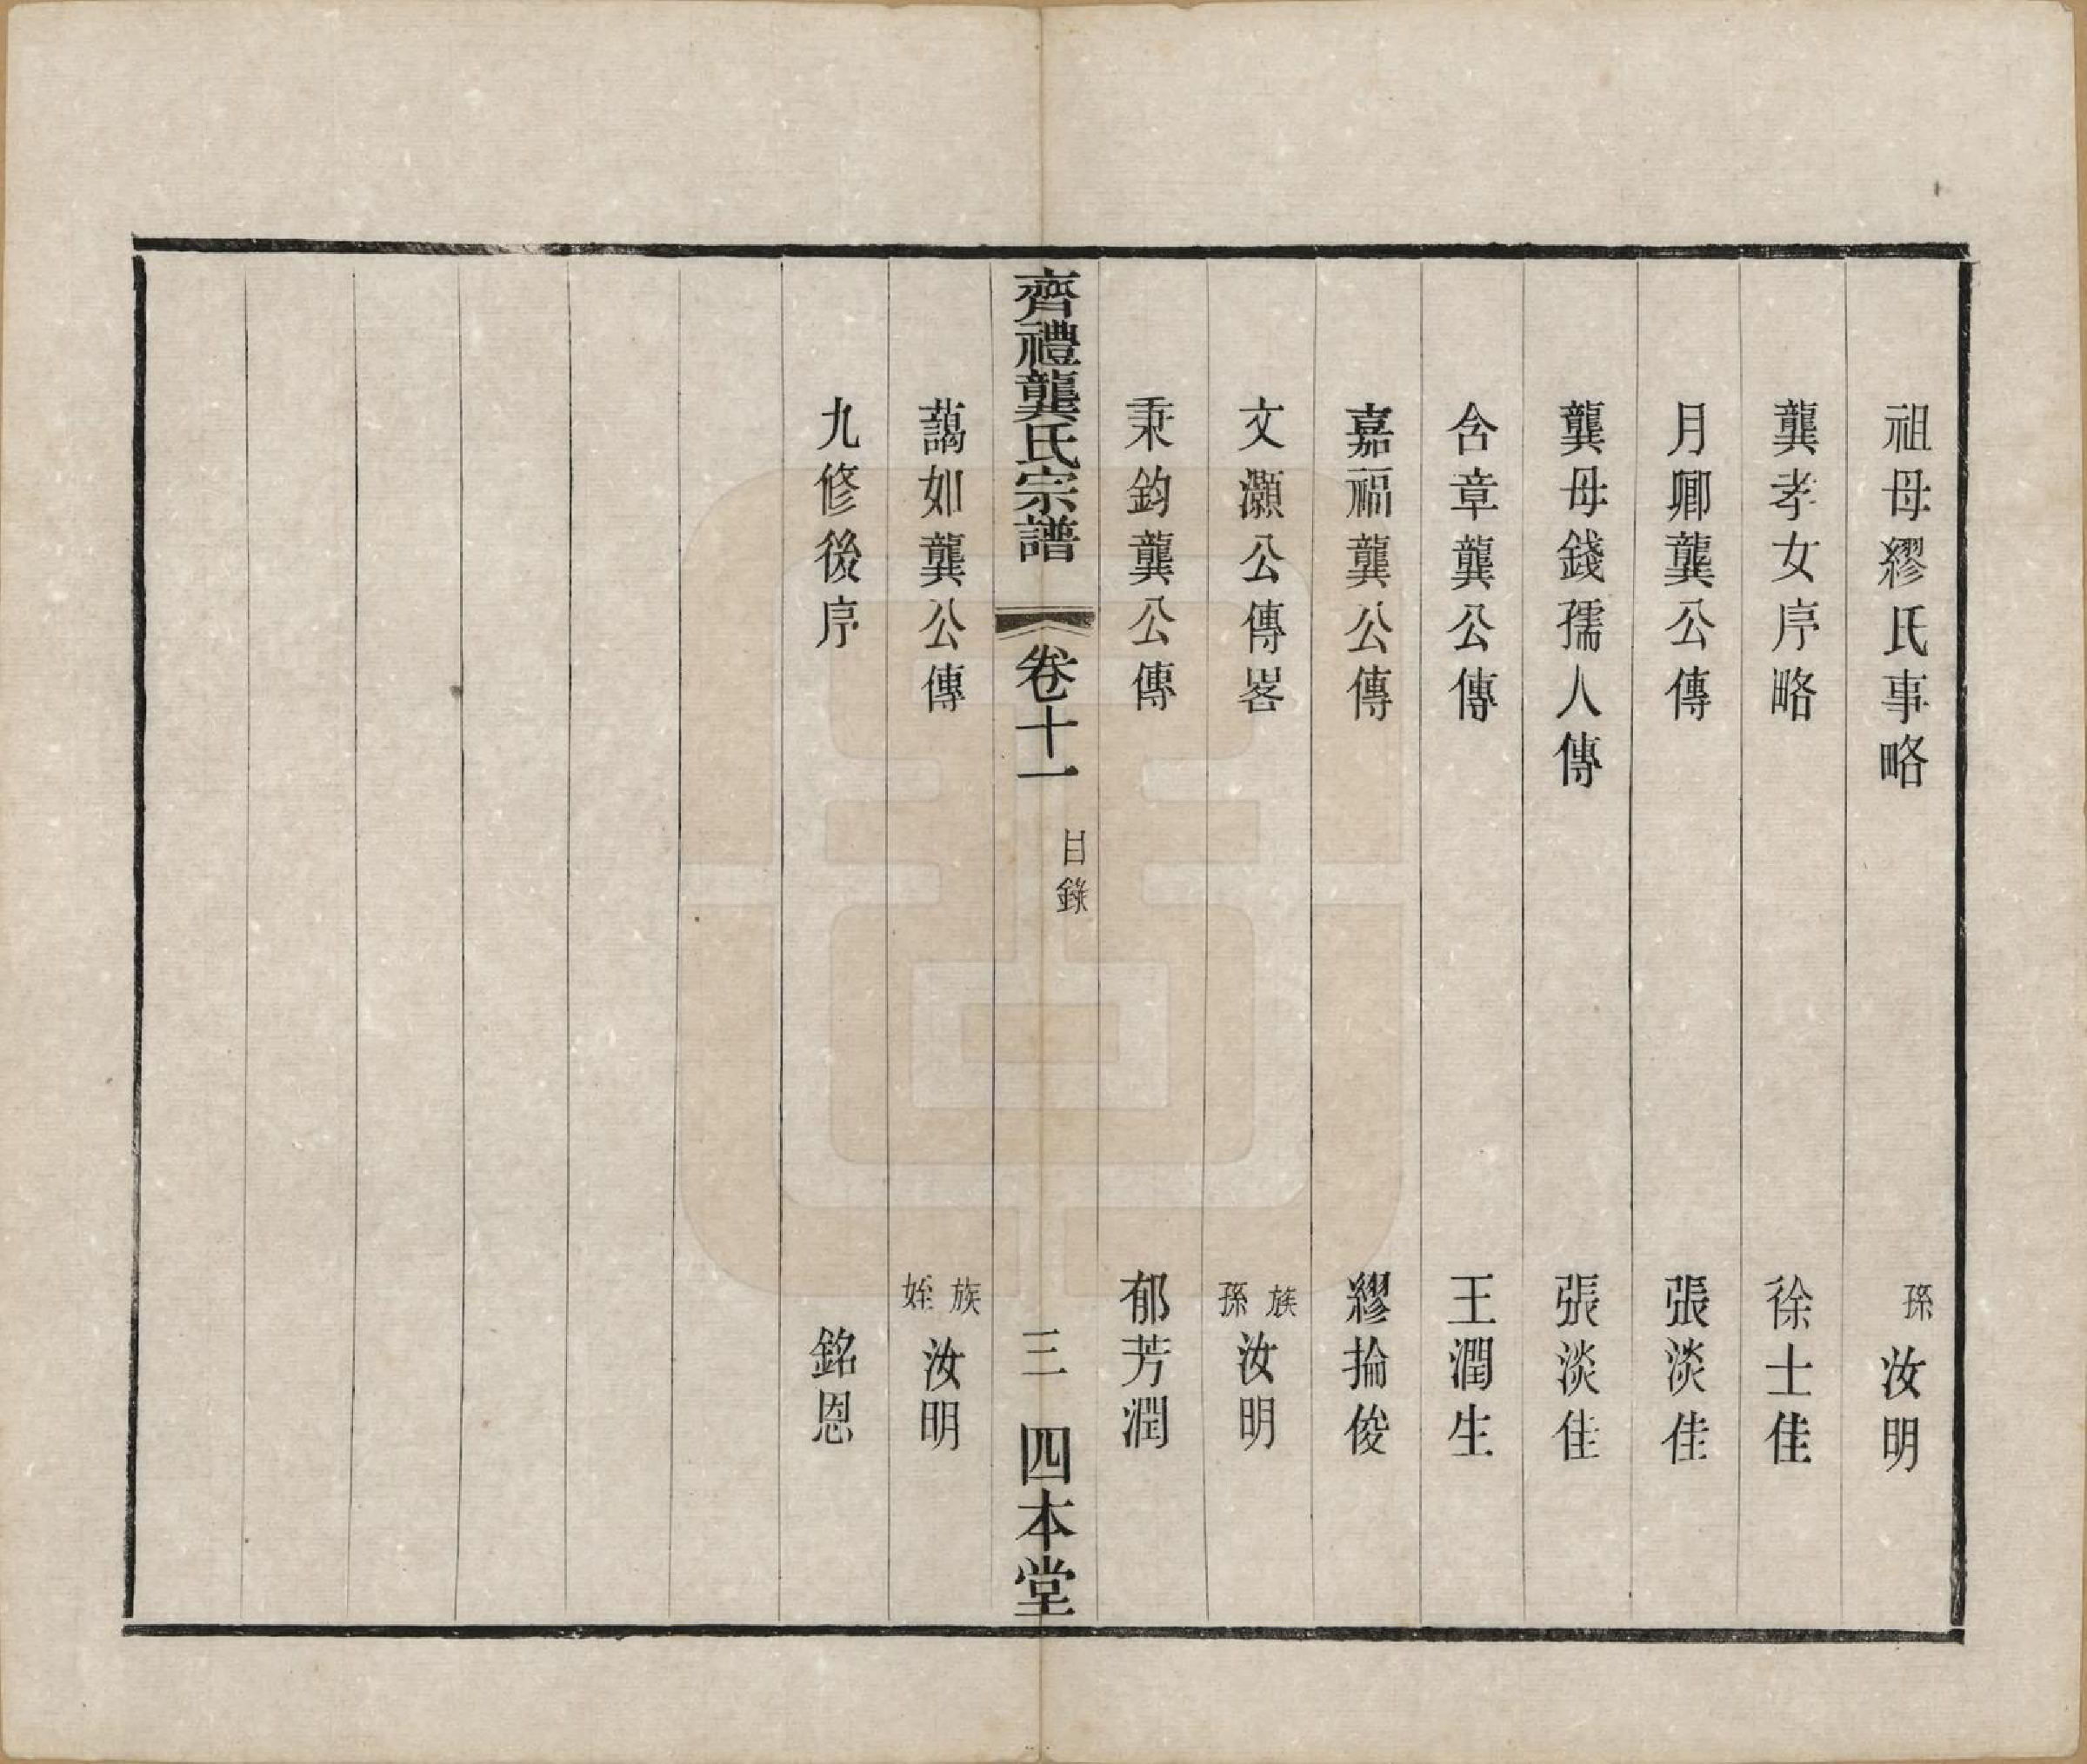 祖母繆氏事略 孫 汝明
龔孝女序略 徐士佳
月卿龔公傳 張淡佳
龔母錢孺人傳 張淡佳
含章龔公傳 王潤生
嘉福龔公傳 繆掄俊
文灝公傳畧 族孫 汝明
秉鈞龔公傳 郁芳潤
齊禮龔氏宗譜 卷十一 目錄 三 四本堂
藹如龔公傳 族姪 汝明
九修後序 銘恩